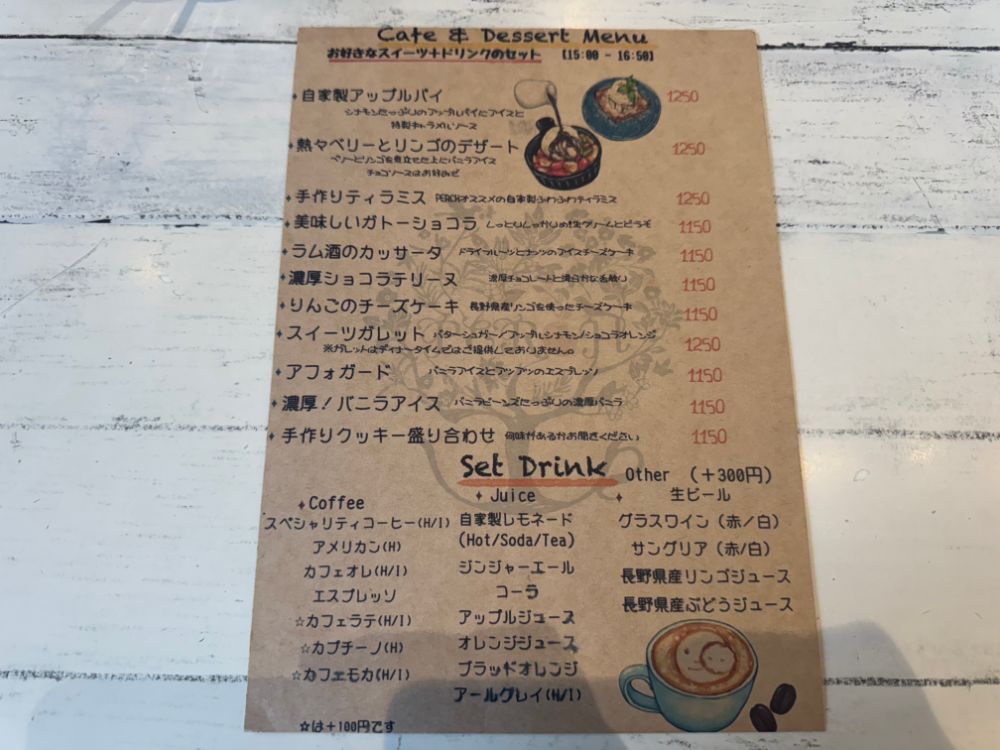 Cafe & Dessert Menu
お好きなスイーツ+ドリンクのセット 【15:00 - 16:50】
自家製アップルパイ 1250
シナモンたっぷりのアップルパイにアイスと
特製キャラメルソース
熱々ベリーとリンゴのデザート 1250
ベリーとリンゴを煮立てた上にバニラアイス
チョコソースはお好みで
手作りティラミス PERCHオススメの自家製ふわふわティラミス 1250
美味しいガトーショコラ しっとりしっかりめ!生クリームとどうぞ 1150
ラム酒のカッサータ ドライフルーツとナッツのアイスチーズケーキ 1150
濃厚ショコラテリーヌ 濃厚チョコレートと滑らかな舌触り 1150
りんごのチーズケーキ 長野県産リンゴを使ったチーズケーキ 1150
スイーツガレット バターシュガー/アップルシナモン/ショコラオレンジ 1250
※ガレットはディナータイムではご提供しておりません。
アフォガード バニラアイスとアツアツのエスプレッソ 1150
濃厚!バニラアイス バニラビーンズたっぷりの濃厚バニラ 1150
手作りクッキー盛り合わせ 何味があるかお聞きください 1150
Set Drink
Coffee
スペシャリティコーヒー(H/I)
アメリカン(H)
カフェオレ(H/I)
エスプレッソ
☆カフェラテ(H/I)
☆カプチーノ(H)
☆カフェモカ(H/I)
☆は+100円です
Juice
自家製レモネード
(Hot/Soda/Tea)
ジンジャーエール
コーラ
アップルジュース
オレンジジュース
ブラッドオレンジ
アールグレイ(H/I)
Other (+300円)
生ビール
グラスワイン(赤/白)
サングリア(赤/白)
長野県産リンゴジュース
長野県産ぶどうジュース